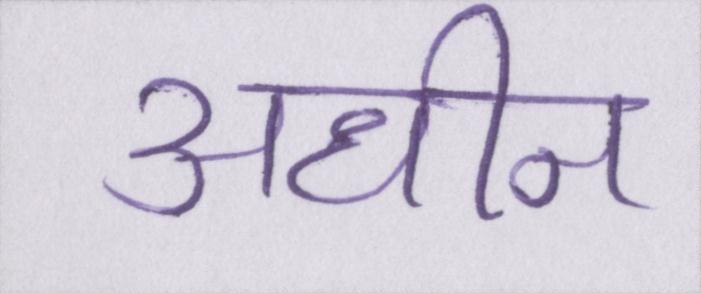 अधीन